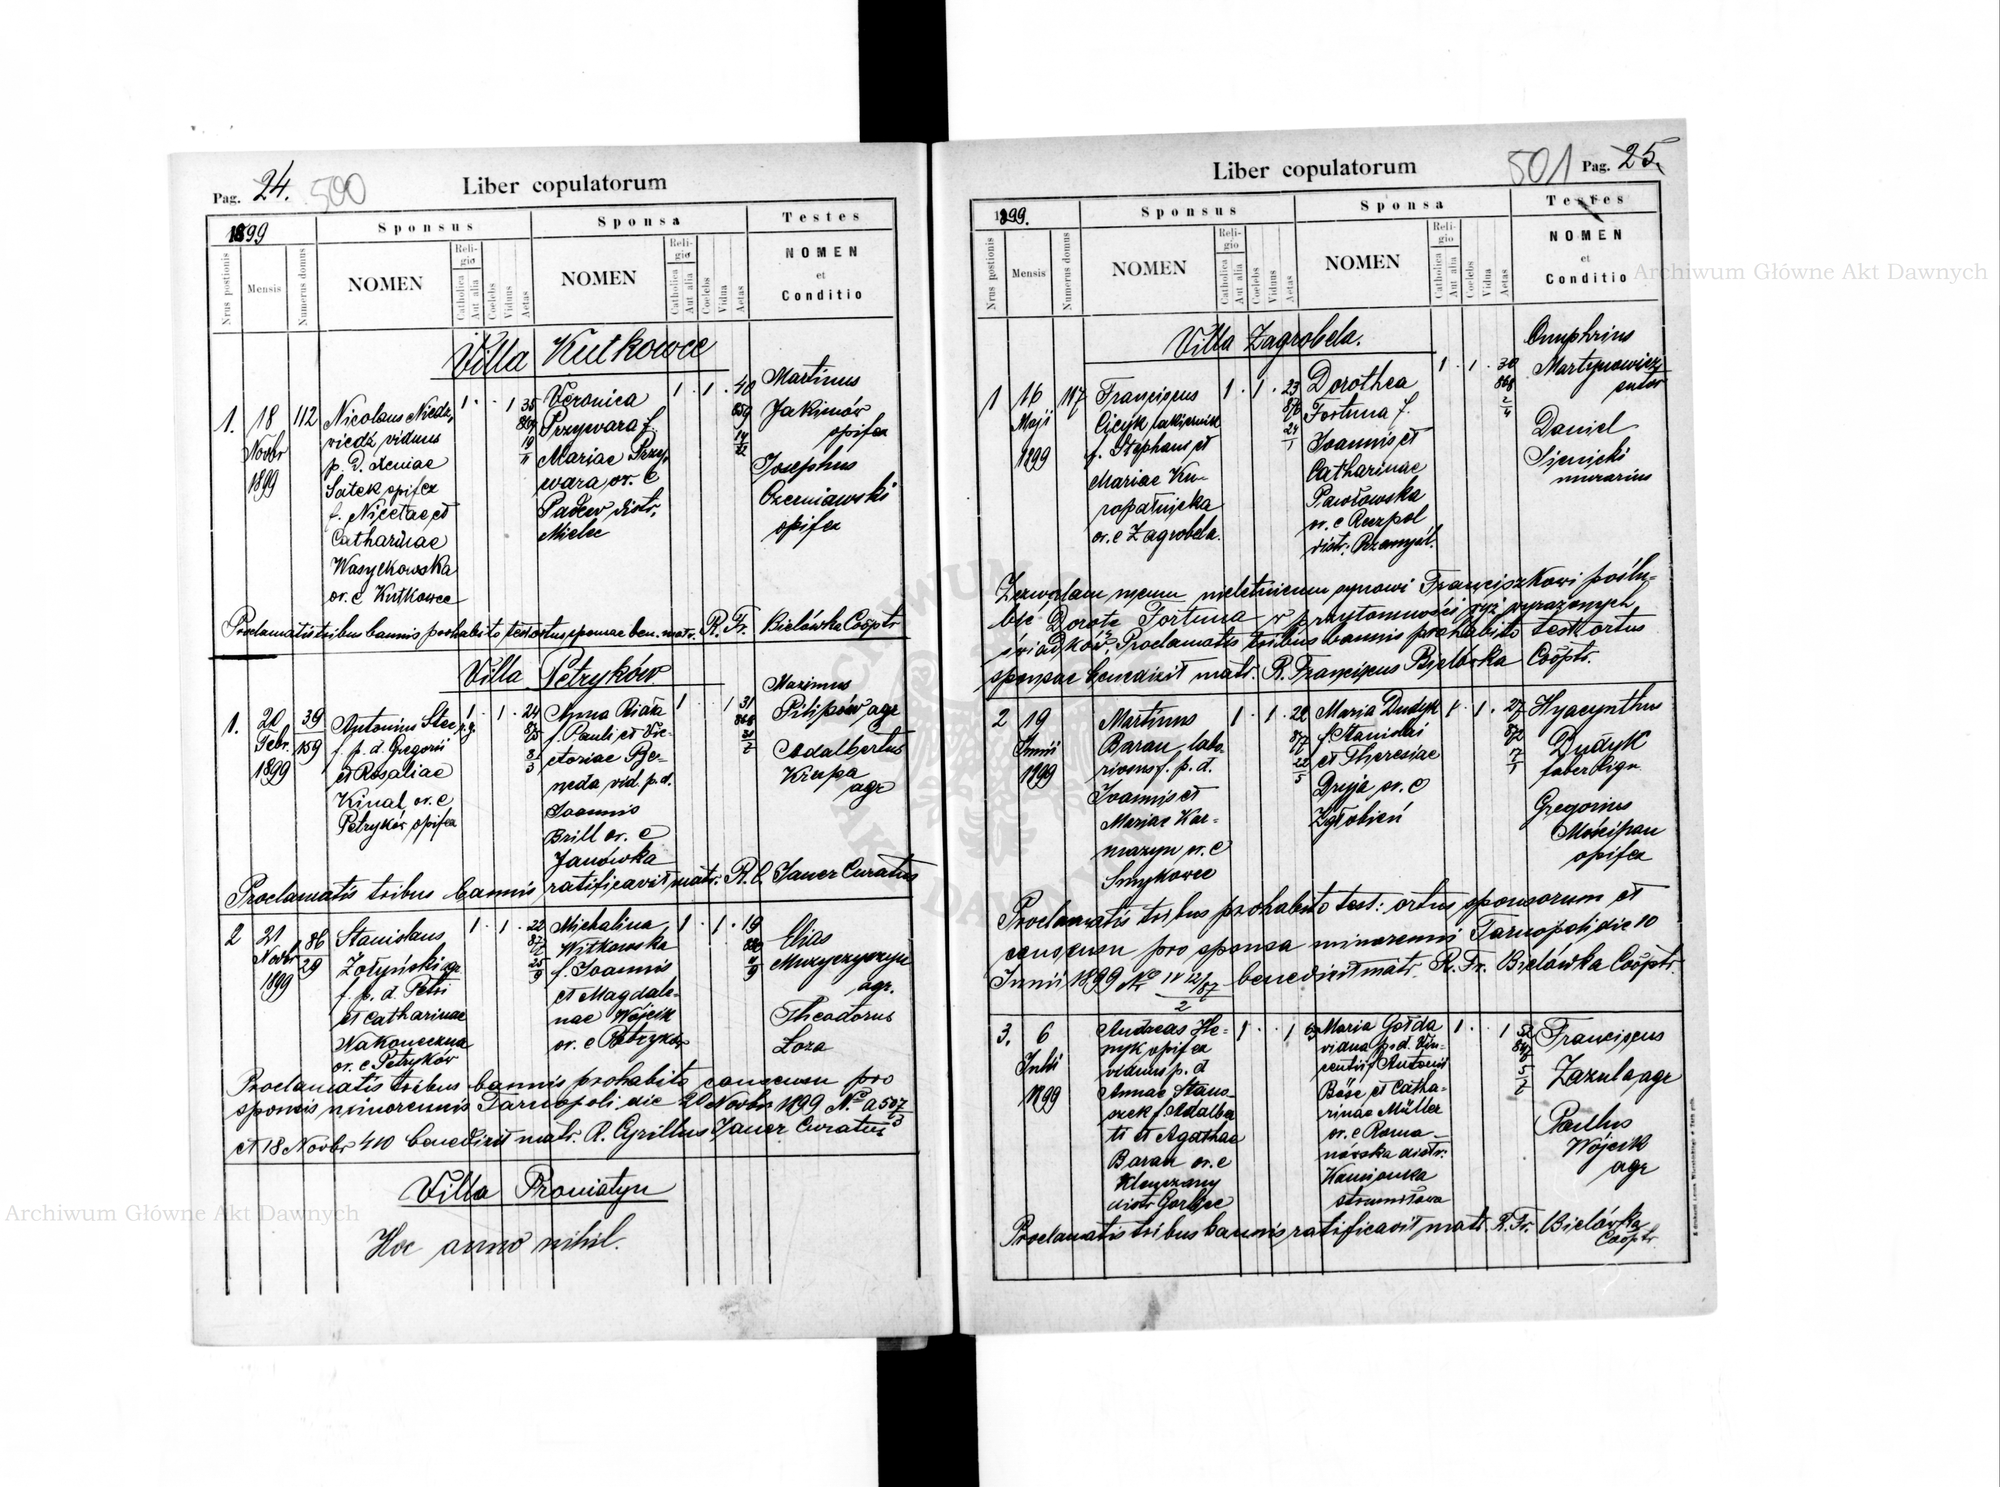 Pag. 24. 500
Liber copulatorum
1899
Sponsus
Sponsa
Testes
Nrus postionis
Mensis
Numerus domus
NOMEN
Religio
Catholica
Aut alia
Coelebs
Viduus
Aetas
NOMEN
Religio
Catholica
Aut alia
Coelebs
Vidua
Aetas
NOMEN
et
Conditio
Villa Kutkowce
1. 18 Novbr 1899
112
Nicolaus Niedź,
viedź viduus
p. d. Xeniae
Satek opifex
f. Nicetae et
Catharinae
Wasylkowska
or. e Kutkowce
1 . . 1 35
869
19
11
Veronica
Przywara f.
Mariae Przy,
wara or. e
Padew distr.
Mielec
1 . 1 . 40
859
14
12
Martinus
Jakimów
opifex
Josephus
Ozerniawski
opifex
Proclamatis tribus bannis prohabito test. ortus sponsae ben. matr. R. Fr. Bielówka Coöptr
Villa Petryków
1. 20 Febr. 1899
39
159
Antonius Stec
f. p. d. Gregorii
et Rosaliae
Kinal or. e
Petryków opifex
1 . 1 . 24
875
3
3
Anna Biała
f. Pauli et Vic-
toriae Be-
neda vid. p. d.
Joannis
Brill or. e
Janówka
1 . . 1 31
868
21
2
Maximus
Pilipów agr
Adalbertus
Krupa
agr
Proclamatis tribus bannis ratificavit matr. R. C. Janer Curatus
2 21 Novbr 1899
86
29
Stanislaus
Żołyński agr
f. p. d. Petri
et Catharinae
Wakoneczna
or. e Petryków
1 . 1 . 22
877
25
9
Michalina
Witkowska
f. Joannis
et Magdale-
nae Wójcik
or. e Petryków
1 . 1 . 19
880
11
9
Elias
Muzyczyszyn
agr.
Theodorus
Loza
Proclamatis tribus bannis prohabito consensu pro
sponsis minorennis Tarnopoli die 20 Novbr 1899 No a 507/3
et 18 Novbr 410 benedixit matr. R. Cyrillus Janer Curatus
Villa Proniatyn
Hoc anno nihil.
Liber copulatorum
501 Pag. 25.
1899.
Sponsus
Sponsa
Testes
Nrus postionis
Mensis
Numerus domus
NOMEN
Religio
Catholica
Aut alia
Coelebs
Viduus
Aetas
NOMEN
Religio
Catholica
Aut alia
Coelebs
Vidua
Aetas
NOMEN
et
Conditio
Villa Zagrobela.
1 16 Maji 1899
117
Franciscus
Cicyk lakiernik
f. Stephani et
Mariae Ku-
ropatnicka
or. e Zagrobela.
1 . 1 . 23
876
24
1
Dorothea
Fortuna f.
Joannis et
Catharinae
Pawłowska
or. e Ruszpol
distr. Przemyśl.
1 . 1 . 30
868
2
4
Onuphrius
Martynowicz
sutor
Daniel
Sienicki
murarius
Zezwalam memu nieletniemu synowi Franciszkowi poślu-
bić Dorotę Fortuna w przytomności wyż wyrażonych
świadków. Proclamatis tribus bannis prohabito test ortus
sponsae benedixit matr. R. Franciscus Bielówka Coöptr.
2 19 Junii 1899
Martinus
Baran labo-
riosus f. p. d.
Joannis et
Mariae Kar-
mazyn or. e
Smykowce
1 . 1 . 22
877
22
5
Maria Dudyk
f. Stanislai
et Theresiae
Dryja or. e
Zgłobień
1 . 1 . 27
872
17
1
Hyacynthus
Dydyk
faber lign
Gregorius
Mościpan
opifex
Proclamatis tribus prohabito test: ortus sponsorum et
consensu pro sponsa minorennis Tarnopoli die 10
Junii 1899 No IV 12/87 benedixit matr. R. Fr. Bielówka Coöptr.
2
3. 6 Julii 1899
Andreas He-
nyk opifex
viduus p. d
Annae Stano-
szek f. Adalber
ti et Agathae
Baran or. e
Kleczany
distr Gorlice
1 . . 1
Maria Gołda
vidua p. d. Vin-
centii f Antonii
Böse et Catha-
rinae Müller
or. e Roma-
nówska distr:
Kamionka
strumiłowa
1 . . 1 52
847
5
2
Franciscus
Zazula agr
Paulus
Wójcik
agr
Proclamatis tribus bannis ratificavit matr. R. Fr. Bielówka
Coöptr
Archiwum Główne Akt Dawnych
Archiwum Główne Akt Dawnych